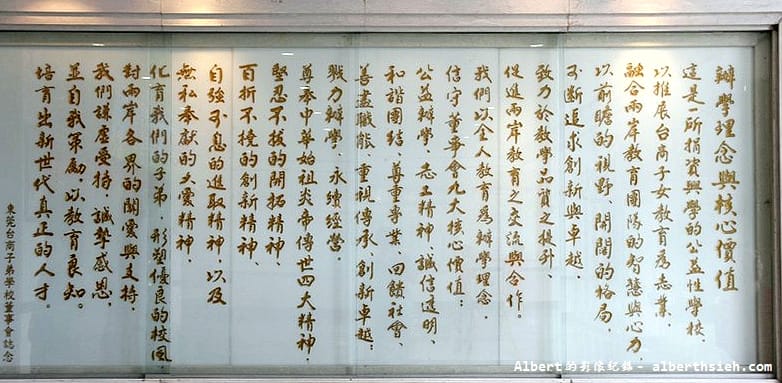 辦學理念與核心價值
這是一所捐資興學的公益性學校，
以推展台商子女教育為志業，
融合兩岸教育團隊的智慧與心力
以前瞻的視野、開闊的格局，
不斷追求創新與卓越，
致力於教學品質之提升、
促進兩岸教育之交流與合作。
我們以全人教育為辦學理念，
信守董事會九大核心價值：
公益辦學、志工精神、誠信透明、
和諧團結、尊重專業、回饋社會、
善盡職能、重視傳承、創新卓越；
戮力辦學、永續經營。
尊奉中華始祖炎帝傳世四大精神，
堅忍不拔的開拓精神、
百折不撓的創新精神、
自強不息的進取精神，以及
無私奉獻的大愛精神，
化育我們的子弟，形塑優良的校風
對兩岸各界的關愛與支持，
我們謙虛受持，誠摯感恩，
並自我策勵以教育良知。
培育出新世代真正的人才。
東莞台商子弟學校董事會誌念
Albert的影像紀錄 - alberthsieh.com